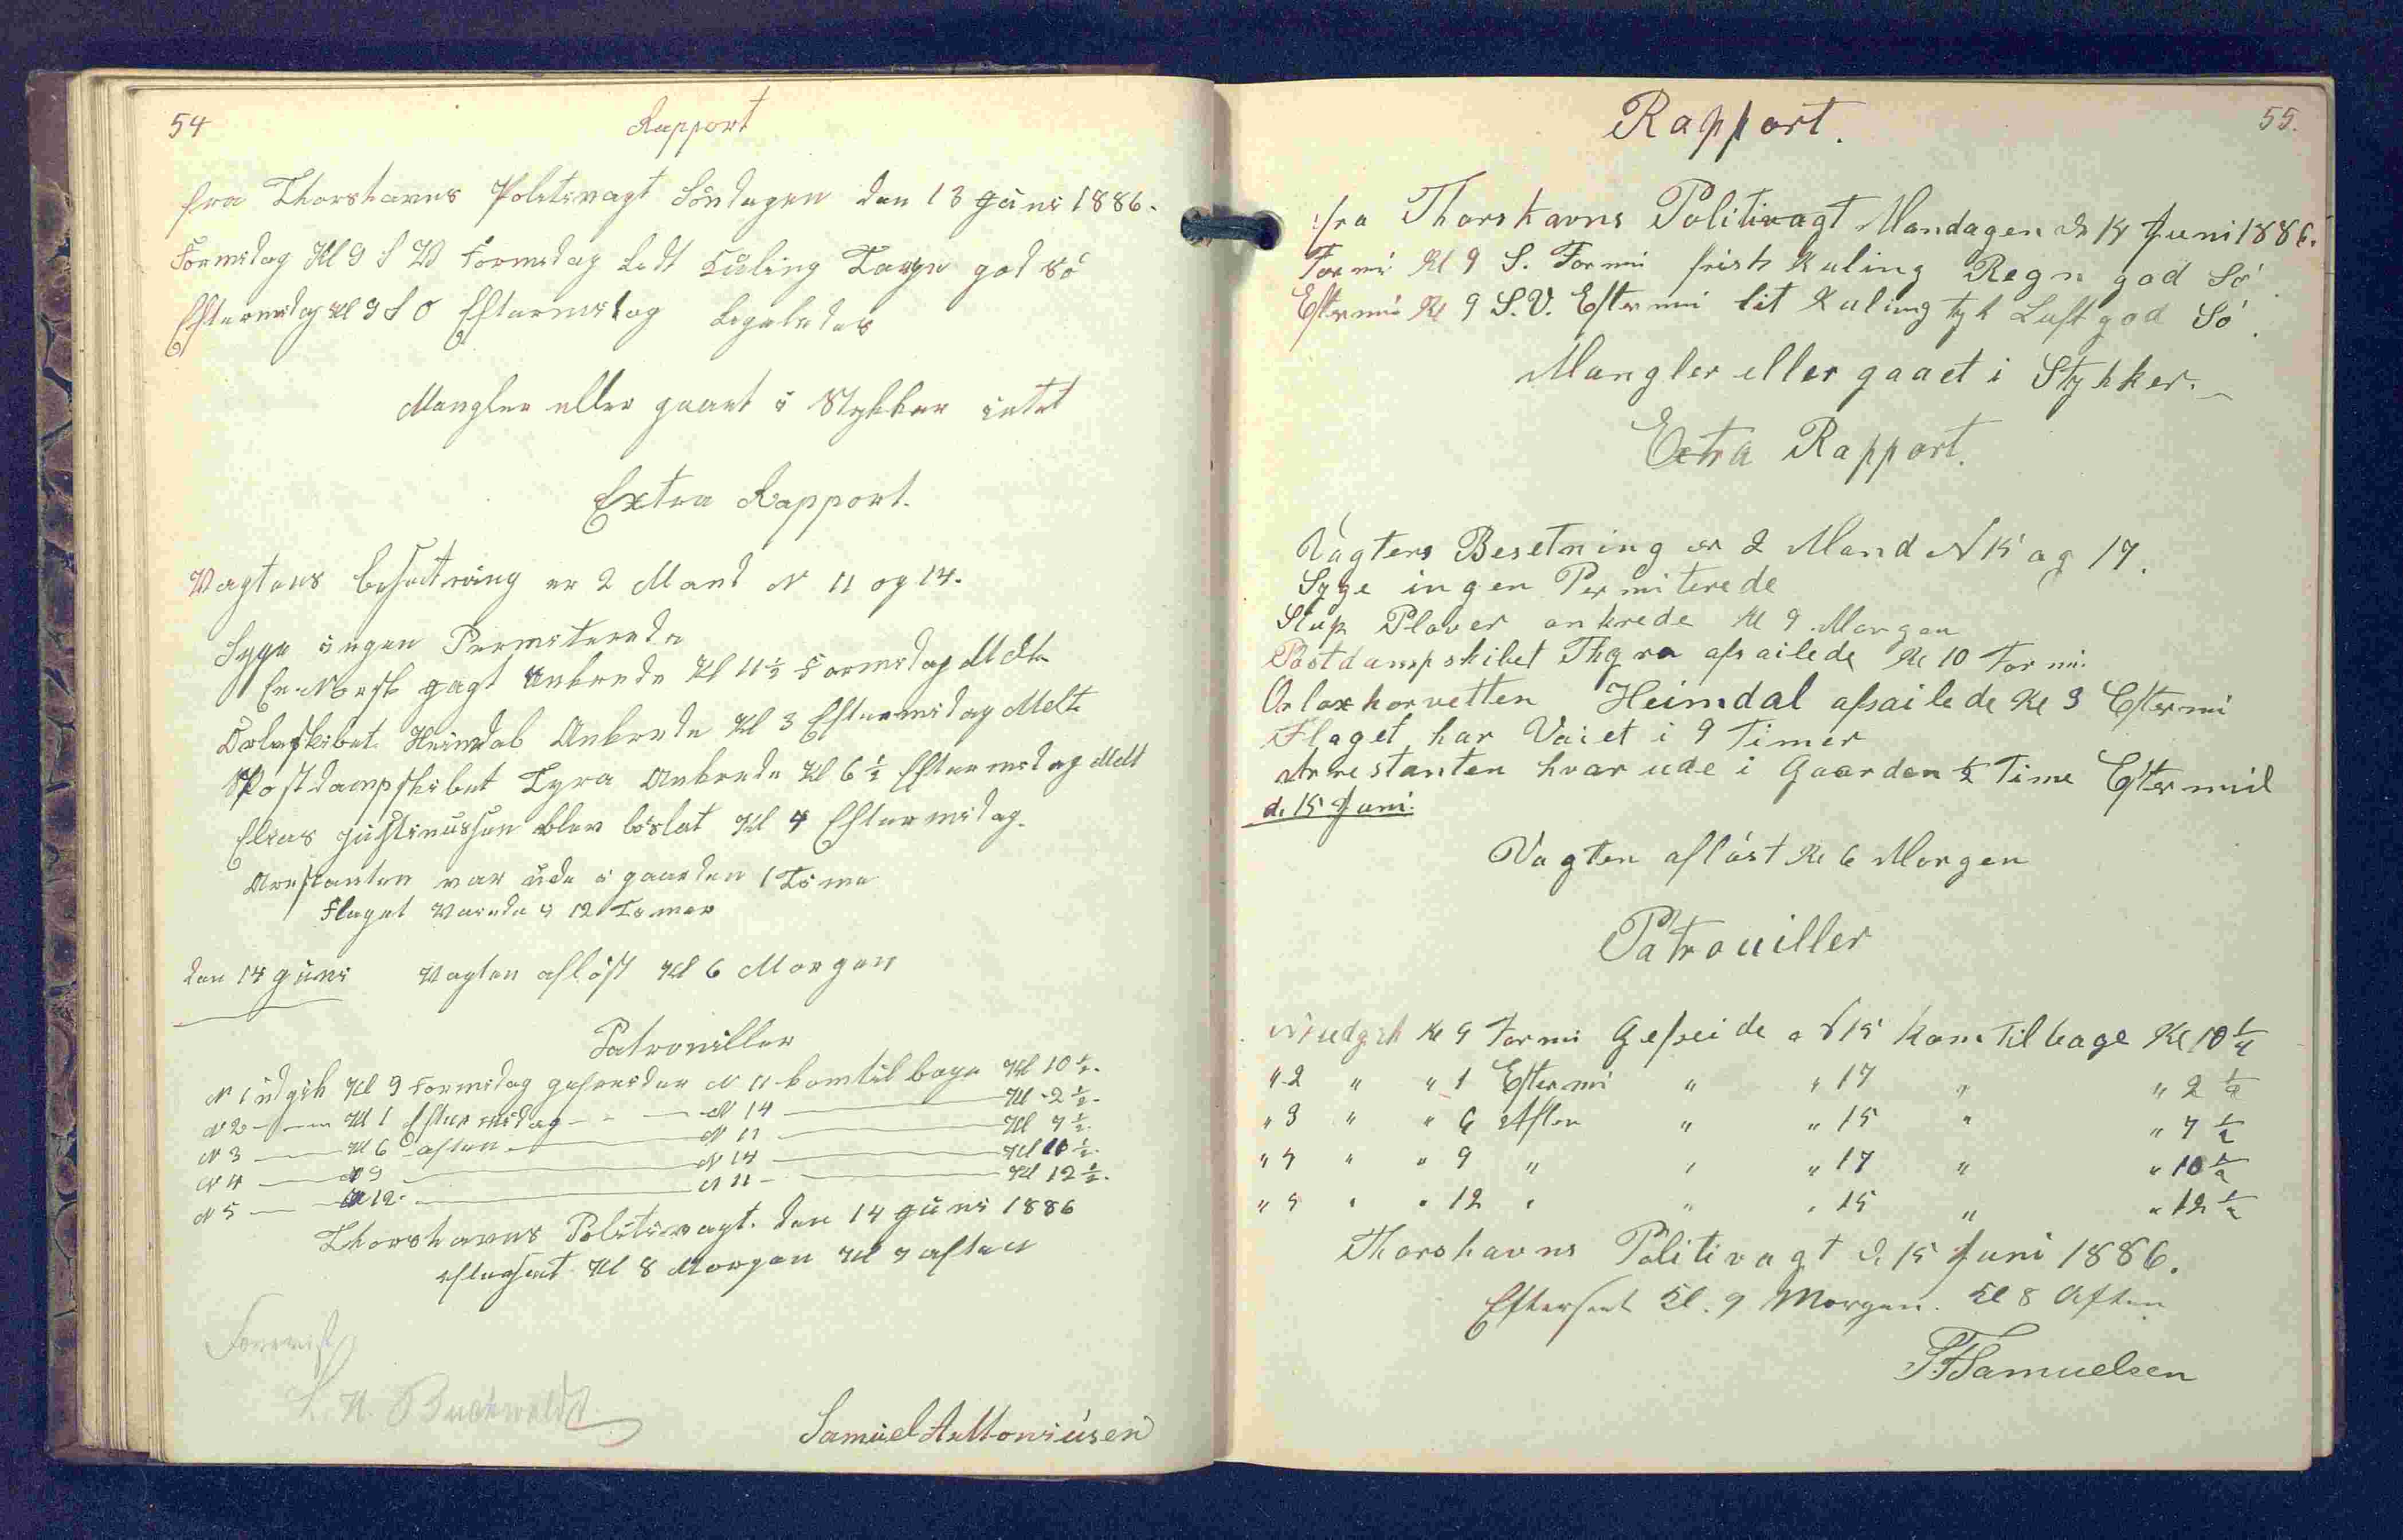 54
Rapport
fra Thorshavns Politivagt Søndagen den 13 Juni 1886.
Formidag Kl 9 S V Formidag Let Kuling god Sö
Eftermidag Kl 9 S O Eftermidag Ligeledes
Mangler eller gaaet i Stykker intet
Extra Rapport.
Vagtens Besætning er 2 Mand N 11 og 14.
Syge ingen Permiterede
En Norsk Jagt Ankrede Kl 11 ½ Formidag Meldt
Heimdal Ankrede Kl 3 Eftermidag Meldt
Postdampskibet Tyra Ankrede Kl 6 ½ Eftermidag Meldt
Elias Justinussen blev löslat Kl 4 Eftermidag.
Arestanten var ude i gaarden 1 Time
Flaget Vaiede i 12 Timer
den 14 Juni Vagten aflöst Kl 6 Morgen
Patrouiller
N 1 udgik Kl 9 Formidag gefreider N 11 kom tilbage Kl 10 ½.
N 2 — — Kl 1 Eftermidag — — N 14 — Kl 2 ½.
N 3 — Kl 6 aften — N 11 — Kl 7 ½.
N 4 — 9 — N 14 — Kl 10 ½.
N 5 — 12 — N 11 — Kl 12 ½.
Thorshavns Politivagt. den 14 Juni 1886
efterset Kl 8 Morgen Kl 7 aften
Buchwaldt
Samuel Antoniüsen
55.
Rapport.
fra Thorshavns Politivagt Mandagen d. 14 Juni 1886.
Formi Kl 9 S. Formi frisk Kuling Regn god Sö
Eftermi Kl 9 S.V. Eftermi lit Kuling tyk Luft god Sö.
Mangler eller gaaet i Stykker. –
Extra Rapport.
Vagtens Besetning er 2 Mand N 15 og 17.
Syge ingen Permiterede
Slup Plover ankrede Kl 9 Morgen
Postdampskibet Thyra afsailede Kl 10 Formi.
Orloxkorvetten Heimdal afsailede Kl 3 Eftermi
Flaget har Vaiet i 9 Timer
Arrestanten hvar ude i Gaarden ½ Time Eftermid
d. 15 Juni.
Vagten aflöst Kl 6 Morgen
Patrouiller
N 1 udgik Kl 9 Formi Gefreide N 15 kom Tilbage Kl 10 ¼
" 2 " " 1 Eftermi " " 17 " " 2 ½
" 3 " " 6 Aften " " 15 " " 7 ½
" 4 " " 9 " " " 17 " " 10 ½
" 5 " " 12 " " " 15 " " 12 ½
Thorshavns Politivagt d. 15 Juni 1886.
Efterset Kl. 9 Morgen. Kl 8 Aften
Samuelsen